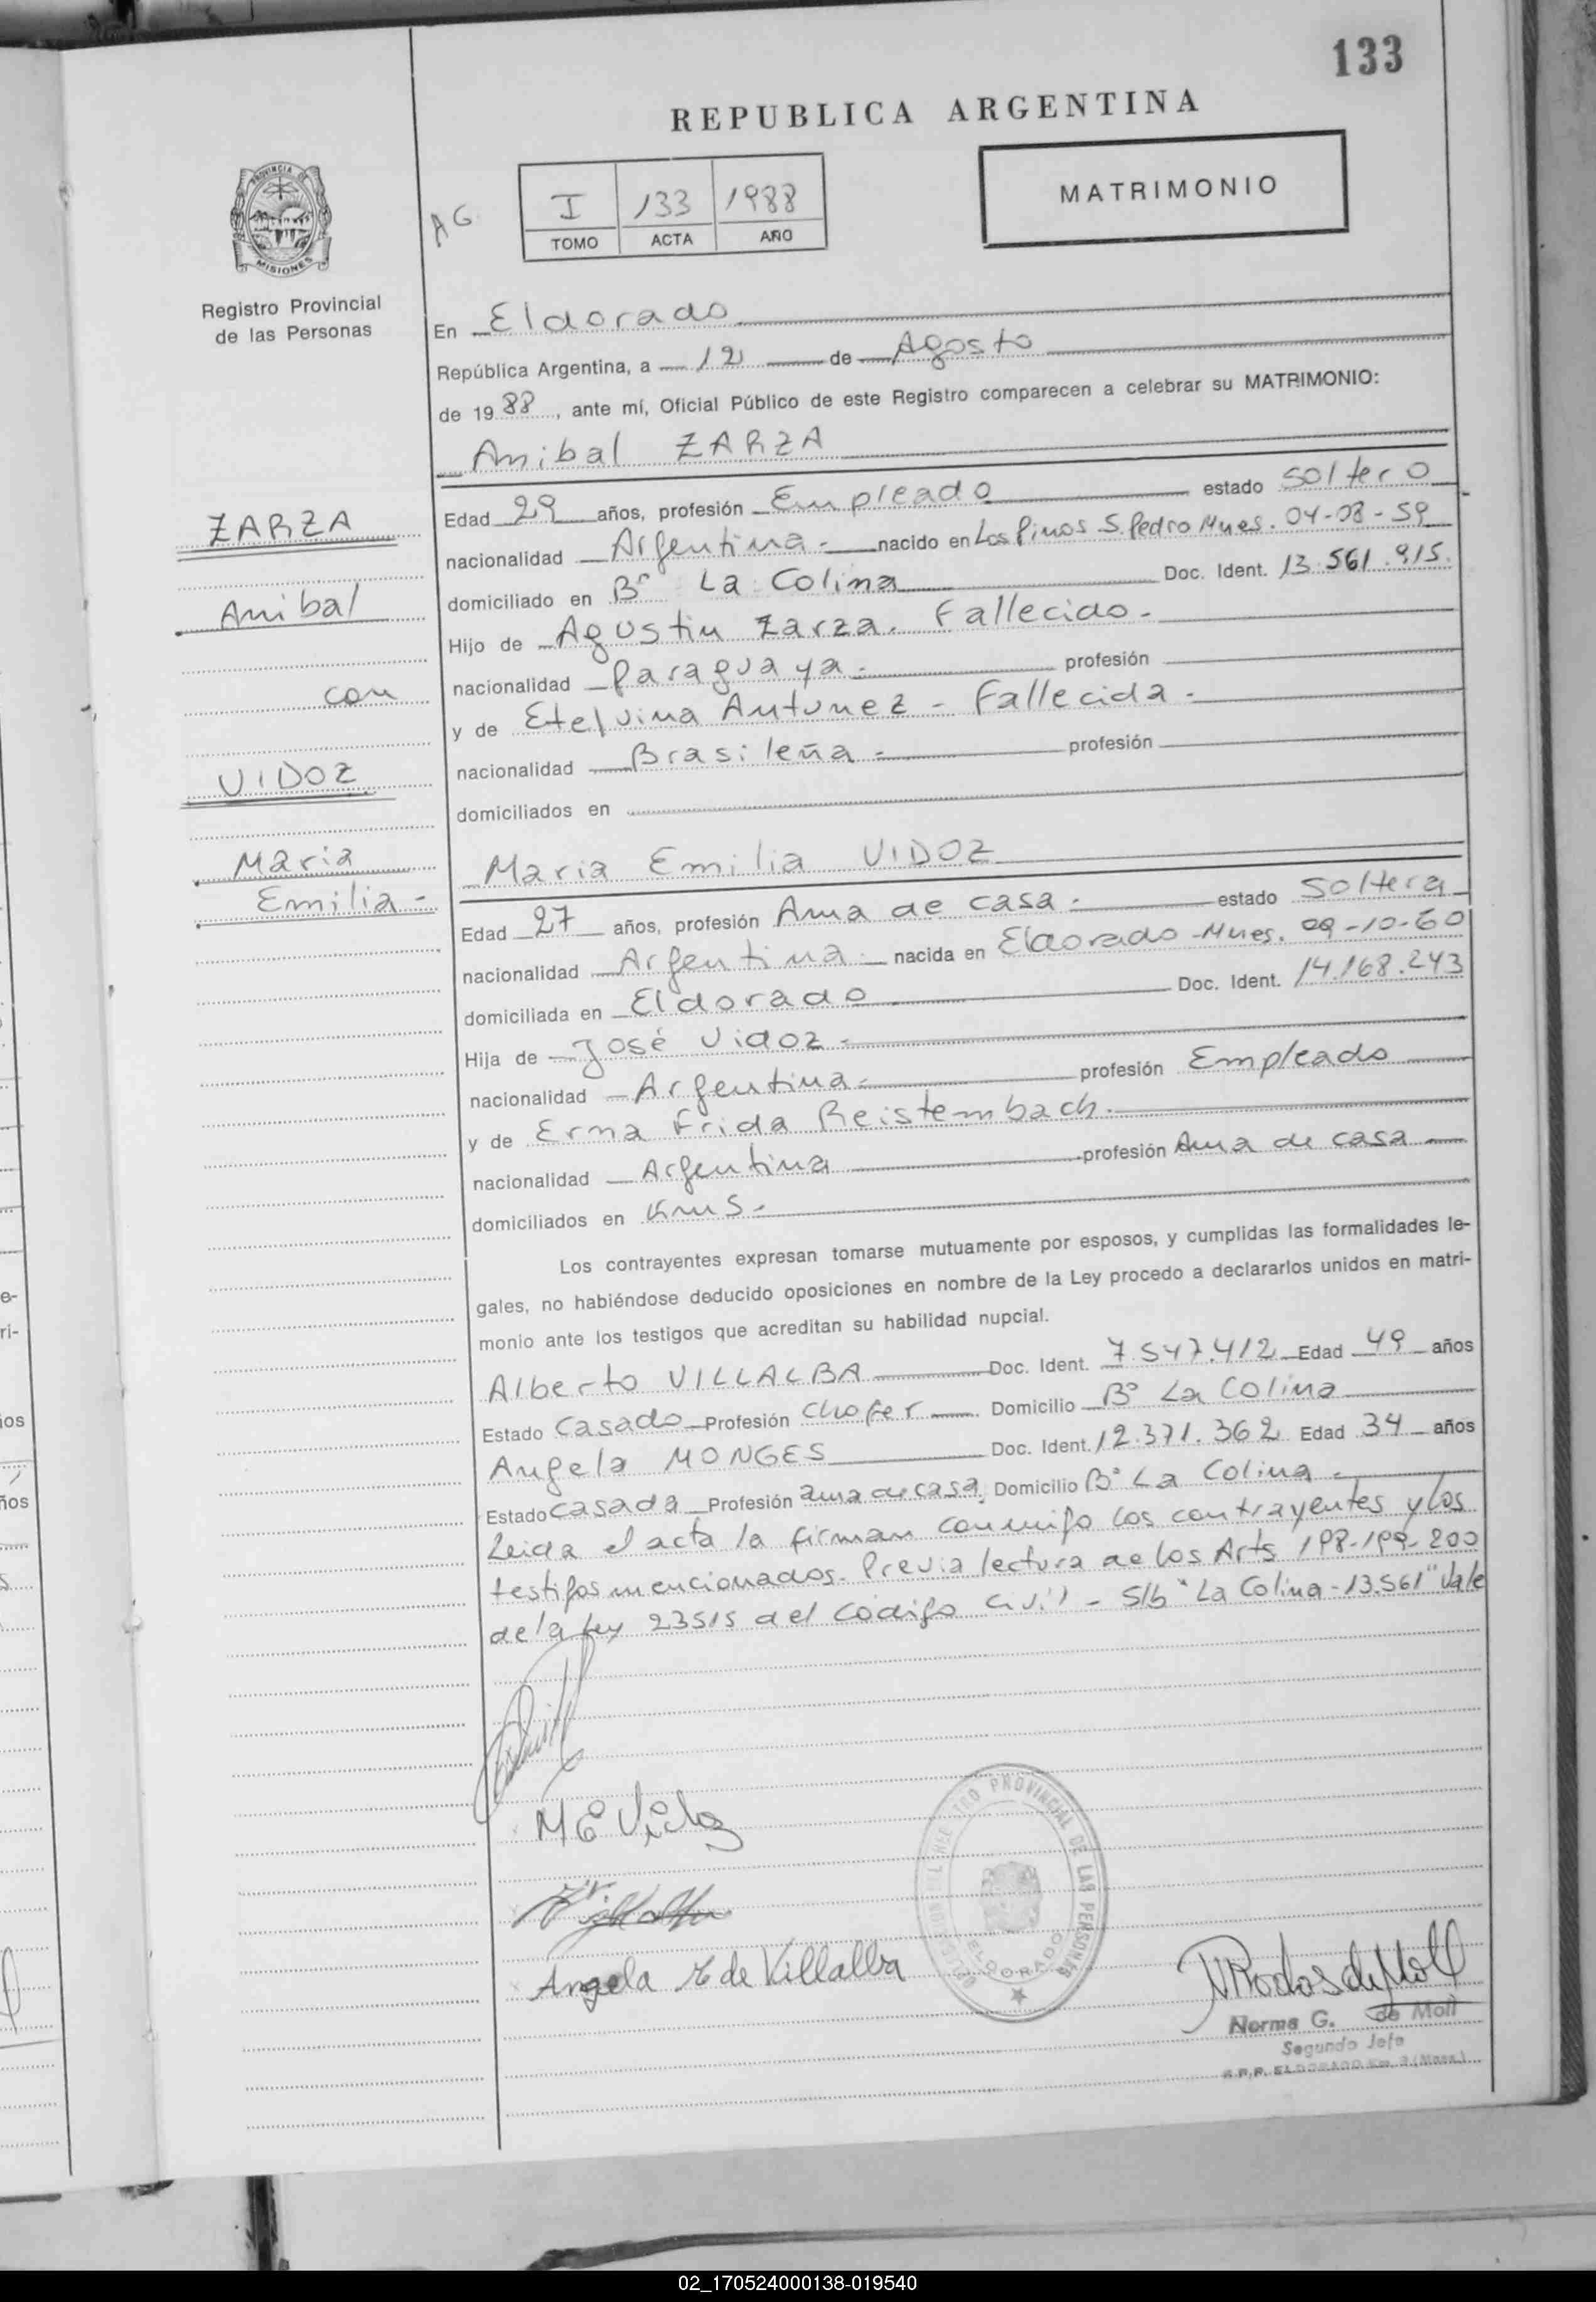 133
REPUBLICA ARGENTINA
PROVINCIA DE
MISIONES
Registro Provincial
de las Personas
AG
I 133 1988
TOMO ACTA AÑO
MATRIMONIO
En Eldorado
República Argentina, a 12 de Agosto
de 1988, ante mí, Oficial Público de este Registro comparecen a celebrar su MATRIMONIO:
Anibal ZARZA
ZARZA
Anibal
con
VIDOZ
Maria
Emilia -
Edad 29 años, profesión Empleado estado soltero
nacionalidad Argentina - nacido en Los Pinos S. Pedro Mnes. 04-08-59
domiciliado en B° La Colina Doc. Ident. 13.561.915.
Hijo de Agustin Zarza. Fallecido -
nacionalidad Paraguaya - profesión
y de Etelvina Antunez - Fallecida -
nacionalidad Brasileña - profesión
domiciliados en
Maria Emilia VIDOZ
Edad 27 años, profesión Ama de casa - estado soltera
nacionalidad Argentina - nacida en Eldorado - Mnes. 09-10-60
domiciliada en Eldorado Doc. Ident. 14.168.243
Hija de José Vidoz -
nacionalidad Argentina - profesión Empleado
y de Erma Frida Reistembach.
nacionalidad Argentina profesión Ama de casa
domiciliados en
Los contrayentes expresan tomarse mutuamente por esposos, y cumplidas las formalidades le-
gales, no habiéndose deducido oposiciones en nombre de la Ley procedo a declararlos unidos en matri-
monio ante los testigos que acreditan su habilidad nupcial.
Alberto VILLALBA Doc. Ident. 7.547.412 Edad 49 años
Estado Casado Profesión Chofer Domicilio B° La Colina
Angela MONGES Doc. Ident. 12.371.362 Edad 34 años
Estado casada Profesión ama de casa. Domicilio B° La Colina -
Leida el acta la firman conmigo los contrayentes y los
testigos mencionados. Previa lectura de los Arts 198-199-200
de la ley 23515 del código civil - S/b "La Colina - 13.561" Vale
M E Vidoz
Angela M de Villalba
PROVINCIAL DE LAS PERSONAS
ELDORADO
N Rodas de Moll
Norma G. de Moll
Segundo Jefe
R.P.P. ELDORADO Km. 2 (Mnes.)
02_170524000138-019540